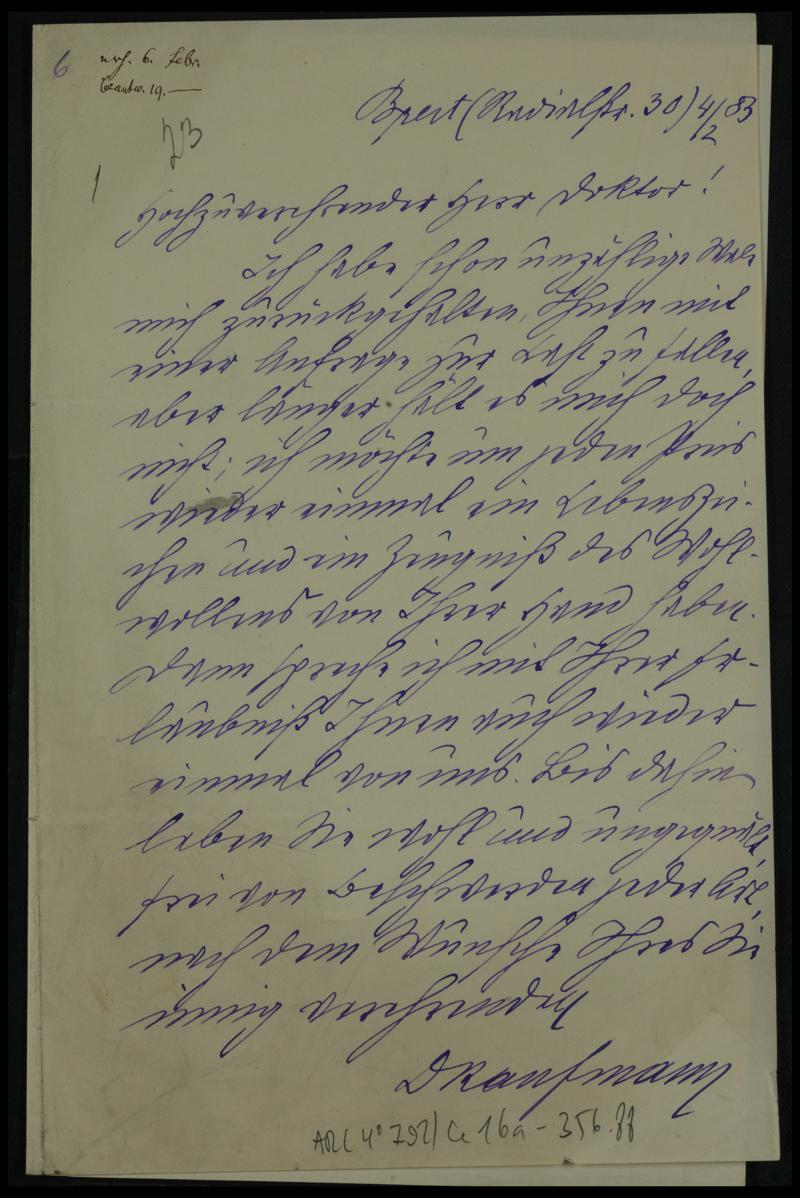 6
erh. 6. Febr.
Beantw. 19. —
23
1
Bpest (Radialstr. 30) 4/2 83
Hochzuverehrender Herr Doktor!
Ich habe schon unzählige Male
mich zurückgehalten, Ihnen mit
einer Anfrage zur Last zu fallen,
aber länger hält es mich doch
nicht; ich möchte um jeden Preis
wieder einmal ein Lebenszei-
chen und ein Zeugniß des Wohl-
wollens von Ihrer Hand haben.
Dann spreche ich mit Ihrer Er-
laubniß Ihnen auch wieder
einmal von uns. Bis dahin
leben Sie wohl und ungequält,
frei von Beschwerden jeder Art,
nach dem Wunsche Ihres Sie
innig verehrenden
DKaufmann
ARC 4° 792/Ce 16a - 356.ff